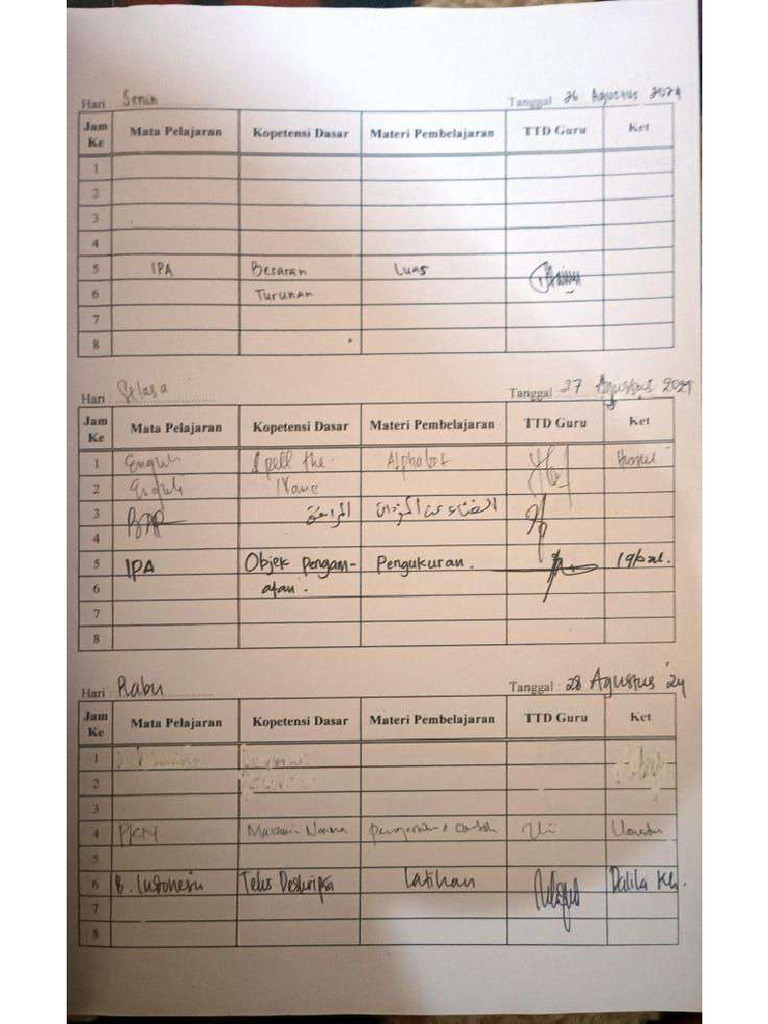 Hari : Senin Tanggal 26 Agustus 2024
Jam Ke Mata Pelajaran Kopetensi Dasar Materi Pembelajaran TTD Guru Ket
1
2
3
4
5 IPA Besaran Luas
6 Turunan
7
8
Hari : Selasa Tanggal 27 Agustus 2024
Jam Ke Mata Pelajaran Kopetensi Dasar Materi Pembelajaran TTD Guru Ket
1 English Spell the Alphabet
2 English Name
3
4
5 IPA Objek Pengam- Pengukuran.
6 atan.
7
8
Hari : Rabu Tanggal : 28 Agustus '24
Jam Ke Mata Pelajaran Kopetensi Dasar Materi Pembelajaran TTD Guru Ket
1
2
3
4 PKN Norma
5
6 B. Indonesia Teks Deskripsi Latihan Dalila
7
8